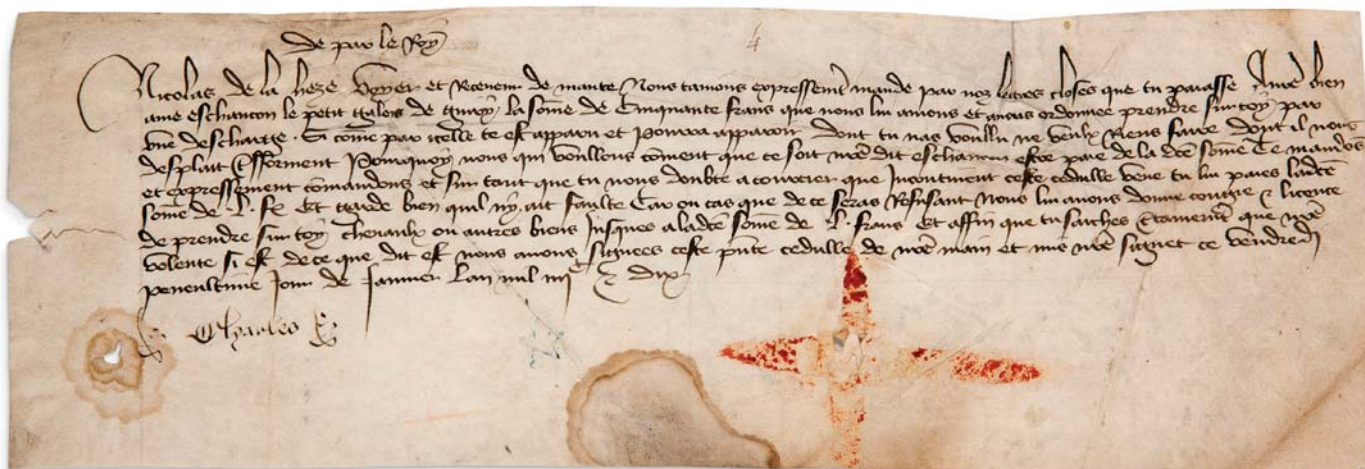 de par le Roy
4
Nicolas de la heze voyer et Receveur de mante Nous tavons expressemt mande par noz lettres closes que tu paiasse a nre bien
ame eschancon le petit de la some de Cinquante frans que nous lui avons et avons ordonnee prendre sur toy par
une descharge. Si come par icelle te est apparu et pourra apparoir dont tu nas voullu ne veulx Riens faire dont il nous
desplait Et forment Pourquoy nous qui voullons coment que ce soit nre dit eschancon estre paie de la dce some Te mandos
et expressement comandons et sur tant que tu nous doubte a courcier que Incontinent ceste cedulle veue tu lui paies ladce
some de .L. fr Et garde bien quil ny ait faulte Car ou cas que de ce seras Refusant Nous lui avons donne congie & licence
de prendre sur toy chevaulx ou autres biens Jusques a ladce some de .L. frans Et affin que tu saiches que nre
volente si est de ce que dit est nous avons signees ceste pnte cedulle de nre main et mis nre signet ce vendredi
penultime Jour de Janvier Lan mil iiijc & dix
Charles